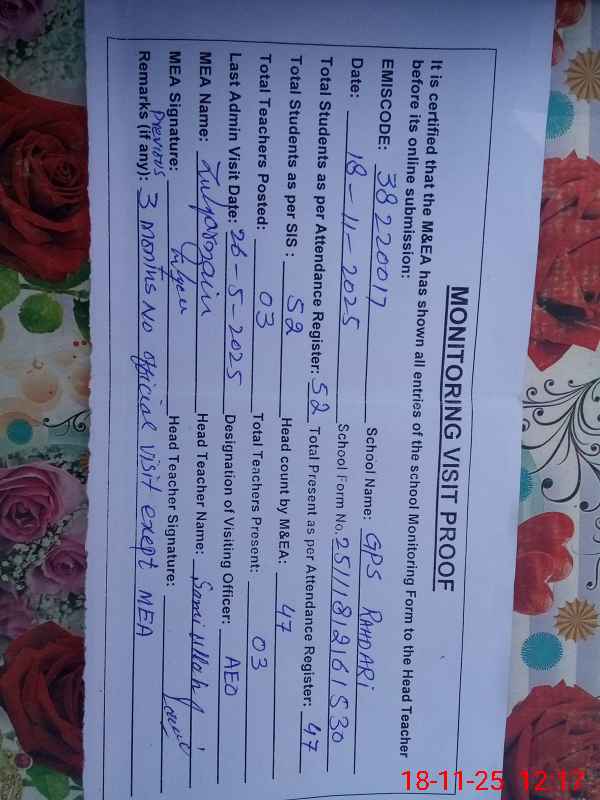 MONITORING VISIT PROOF
It is certified that the M&EA has shown all entries of the school Monitoring Form to the Head Teacher
before its online submission:
EMISCODE: 38220017 School Name: GPS RAHDARI
Date: 18-11-2025 School Form No. 25111812161530
Total Students as per Attendance Register: 52 Total Present as per Attendance Register: 47
Total Students as per SIS : 52 Head count by M&EA: 47
Total Teachers Posted: 03 Total Teachers Present: 03
Last Admin Visit Date: 26-5-2025 Designation of Visiting Officer: AEO
MEA Name: Head Teacher Name: Sami ullah
MEA Signature: Head Teacher Signature:
Remarks (if any): Previous 3 months No official visit exept MEA
18-11-25 12:17